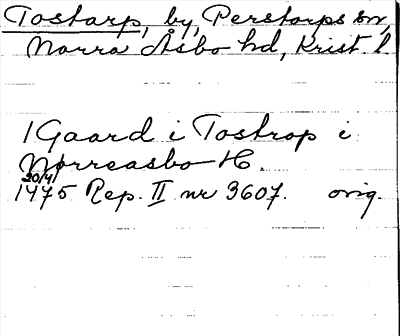 Tostarp, by, Perstorps sn,
Norra Åsbo hd, Krist. l
1 Gaard i Tostrop i
Nørreasbo H.
20/4
1475 Rep. II nr 3607. orig.